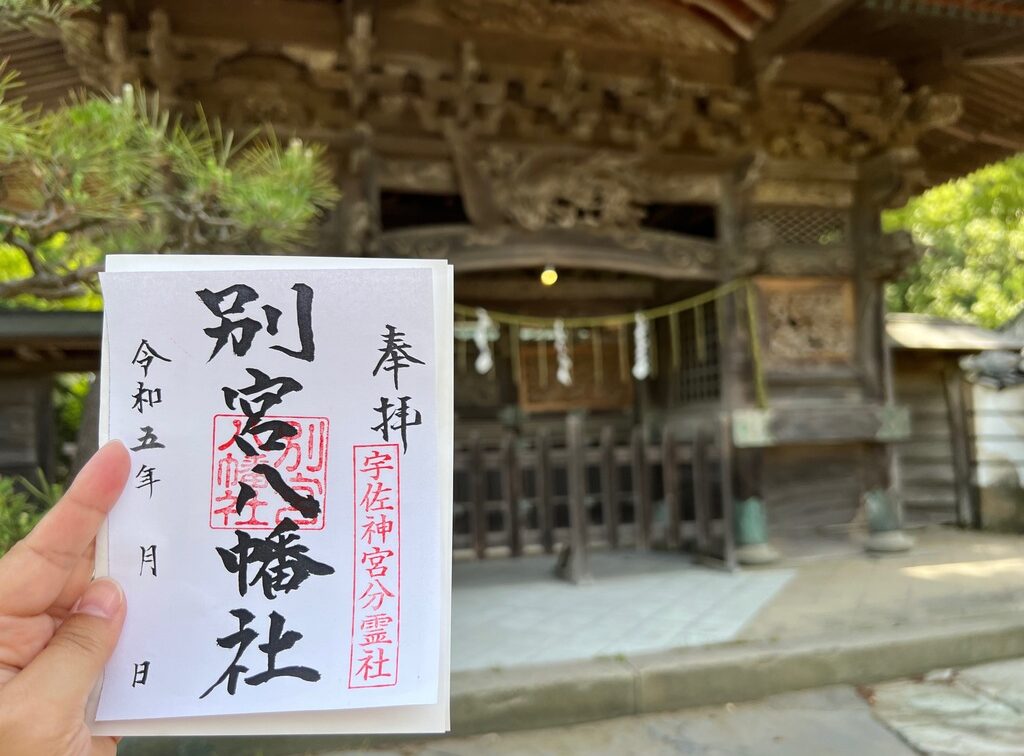 奉拝
宇佐神宮分霊社
別宮八幡社
別宮
八幡社
令和五年 月 日